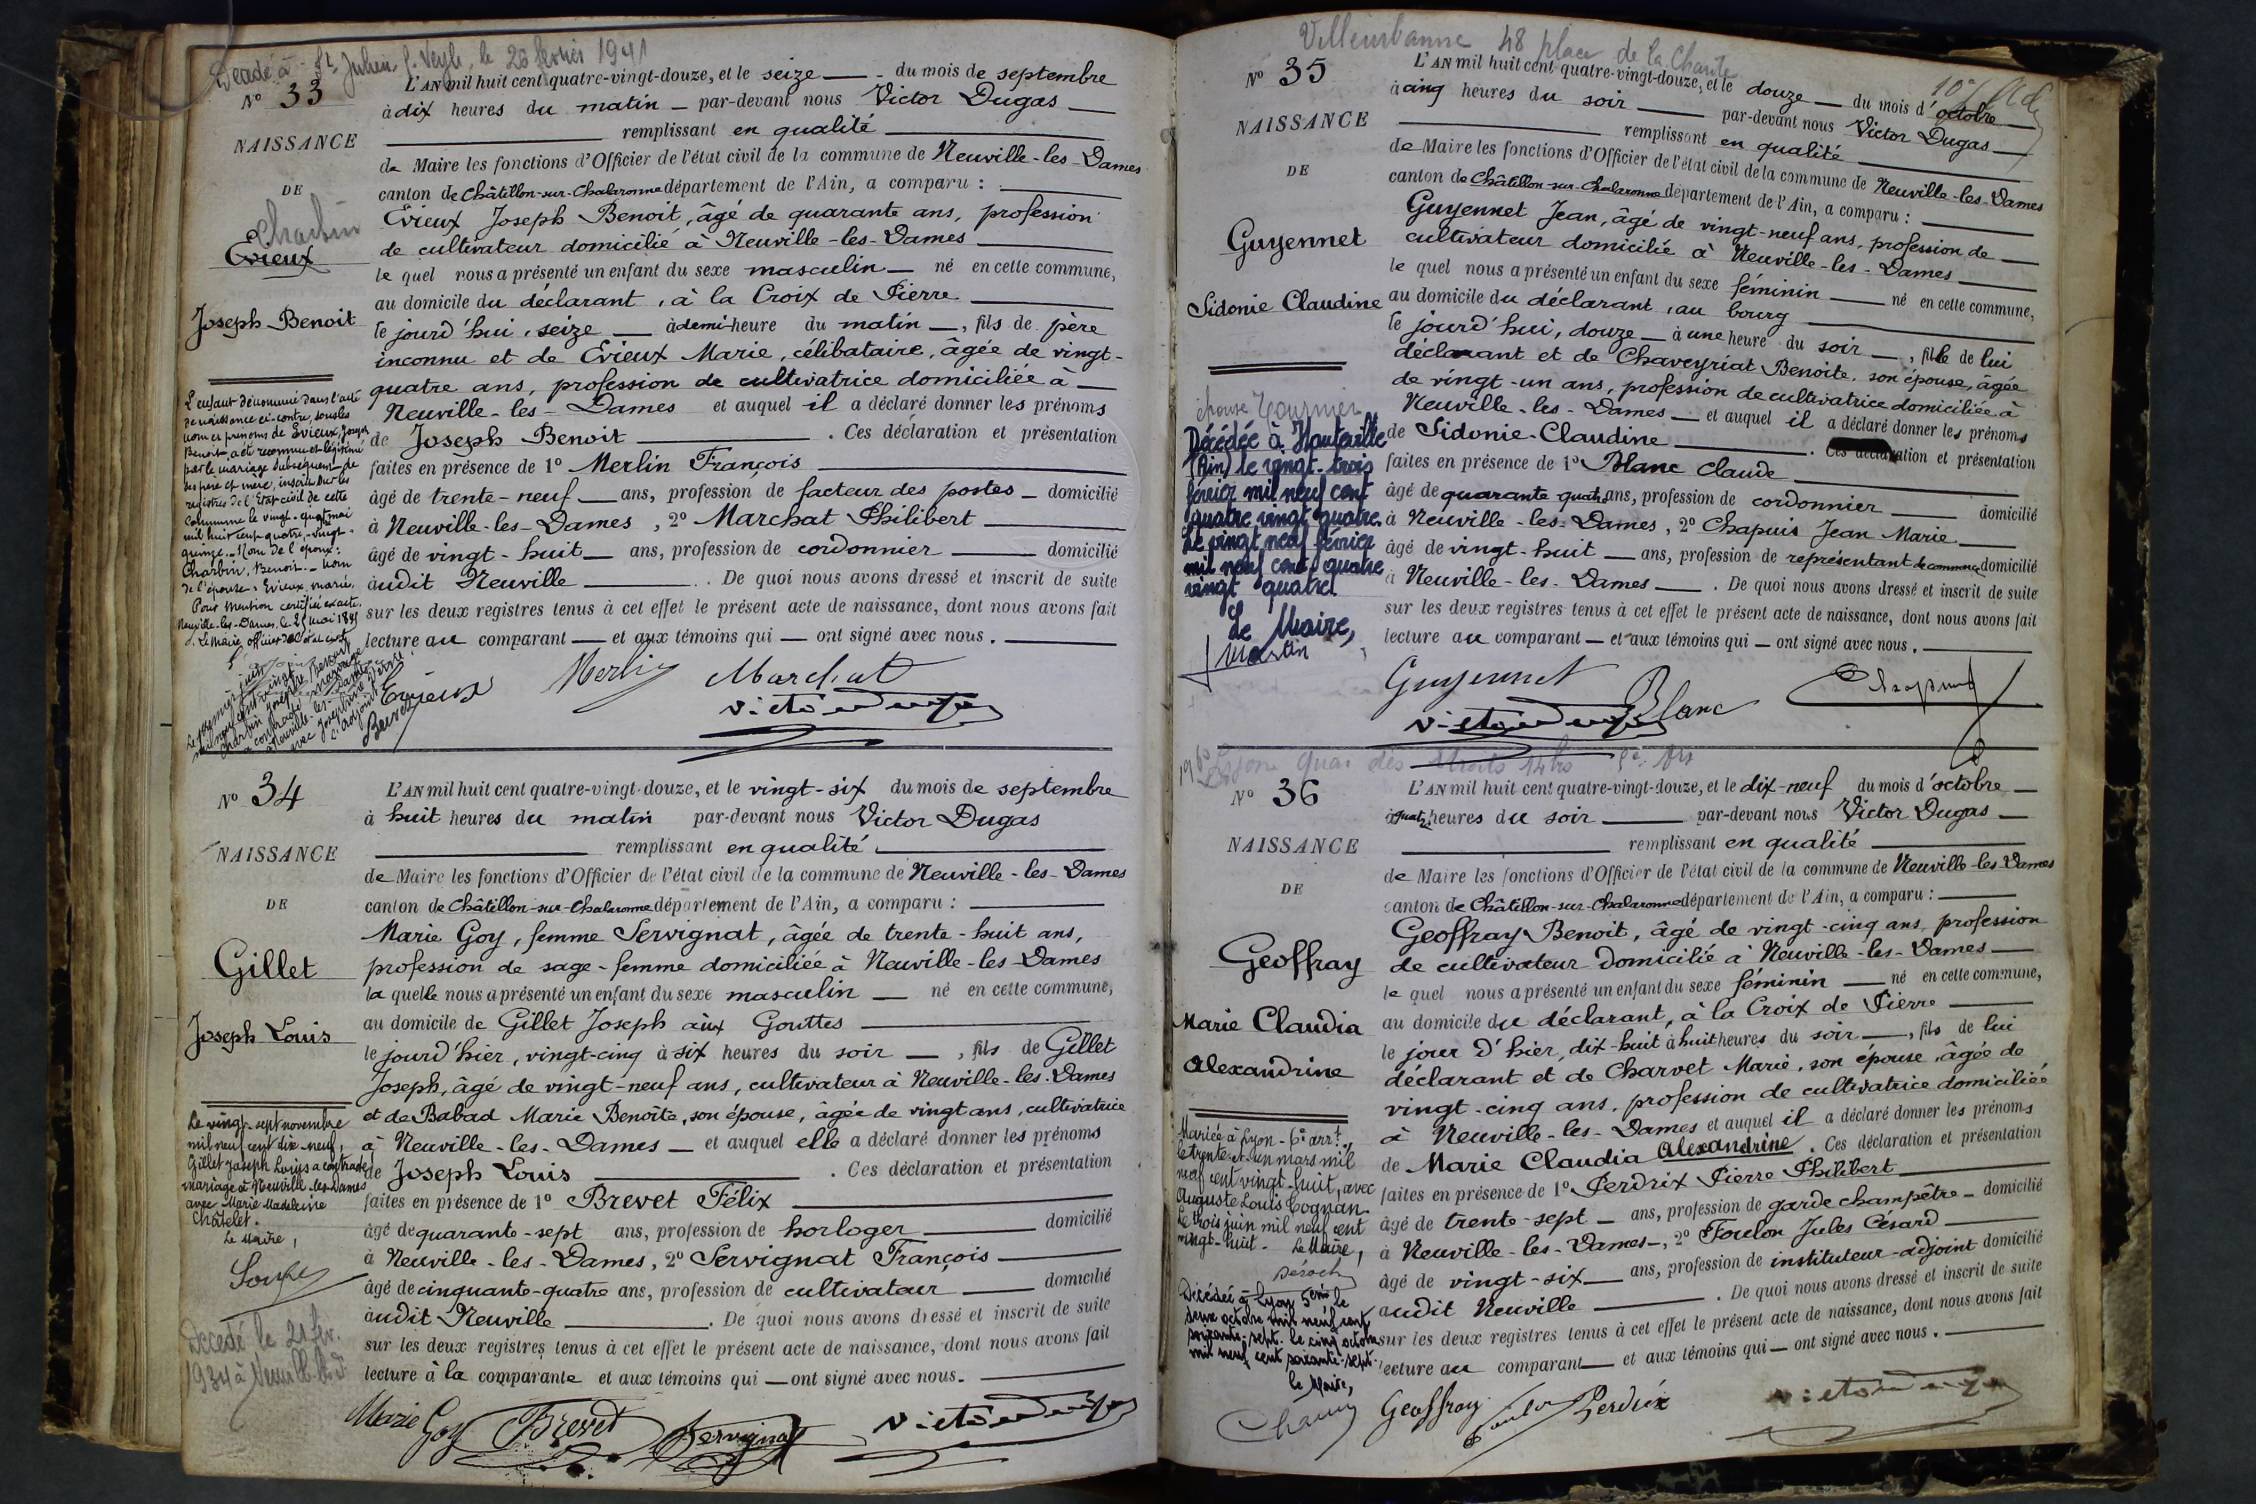 Décédé à St Julien s. Veyle, le 20 février 1941
N° 33
NAISSANCE
DE
Charbin
Evieux
Joseph Benoit
L'enfant dénommé dans l'acte
de naissance ci-contre, sous les
nom et prénoms de Evieux, Joseph
Benoit, a été reconnu et légitimé
par le mariage subséquent de
ses père et mère, inscrit sur les
registres de l'Etat-civil de cette
commune le vingt-quatre mai
mil huit cent quatre-vingt-
quinze. Nom de l'époux:
Charbin, Benoit. Nom
de l'épouse: Evieux, Marie.
Pour mention certifiée exacte.
Neuville-les-Dames, le 25 mai 1895
Le Maire, officier de l'état civil
Charbin Joseph Benoit
a contracté mariage
à Neuville-les-Dames
avec Joséphine
L'adjoint
L'AN mil huit cent quatre-vingt-douze, et le seize du mois de septembre
à dix heures du matin par-devant nous Victor Dugas
remplissant en qualité
de Maire les fonctions d'Officier de l'état civil de la commune de Neuville-les-Dames
canton de Châtillon-sur-Chalaronne département de l'Ain, a comparu :
Evieux Joseph Benoit, âgé de quarante ans, profession
de cultivateur domicilié à Neuville-les-Dames
le quel nous a présenté un enfant du sexe masculin né en cette commune,
au domicile du déclarant, à la Croix de Pierre
le jourd'hui, seize à demi-heure du matin, fils de père
inconnu et de Evieux Marie, célibataire, âgée de vingt-
quatre ans, profession de cultivatrice domiciliée à
Neuville-les-Dames et auquel il a déclaré donner les prénoms
de Joseph Benoit. Ces déclaration et présentation
faites en présence de 1° Merlin François
âgé de trente-neuf ans, profession de facteur des postes domicilié
à Neuville-les-Dames, 2° Marchat Philibert
âgé de vingt-huit ans, profession de cordonnier domicilié
audit Neuville. De quoi nous avons dressé et inscrit de suite
sur les deux registres tenus à cet effet le présent acte de naissance, dont nous avons fait
lecture au comparant et aux témoins qui ont signé avec nous.
Evieux Merlin Marchat
Victor Dugas
N° 34
NAISSANCE
DE
Gillet
Joseph Louis
Le vingt-sept novembre
mil neuf cent dix-neuf,
Gillet Joseph Louis a contracté
mariage à Neuville-les-Dames
avec Marie Madeleine
Châtelet.
Le Maire,
Décédé le 21 fév.
1934 à Neuville-les-D
L'AN mil huit cent quatre-vingt-douze, et le vingt-six du mois de septembre
à huit heures du matin par-devant nous Victor Dugas
remplissant en qualité
de Maire les fonctions d'Officier de l'état civil de la commune de Neuville-les-Dames
canton de Châtillon-sur-Chalaronne département de l'Ain, a comparu :
Marie Goy, femme Servignat, âgée de trente-huit ans,
profession de sage-femme domiciliée à Neuville-les-Dames
la quelle nous a présenté un enfant du sexe masculin né en cette commune,
au domicile de Gillet Joseph aux Gouttes
le jourd'hier, vingt-cinq à six heures du soir, fils de Gillet
Joseph, âgé de vingt-neuf ans, cultivateur à Neuville-les-Dames
et de Babad Marie Benoîte, son épouse, âgée de vingt ans, cultivatrice
à Neuville-les-Dames et auquel elle a déclaré donner les prénoms
de Joseph Louis. Ces déclaration et présentation
faites en présence de 1° Brevet Félix
âgé de quarante-sept ans, profession de horloger domicilié
à Neuville-les-Dames, 2° Servignat François
âgé de cinquante-quatre ans, profession de cultivateur domicilié
audit Neuville. De quoi nous avons dressé et inscrit de suite
sur les deux registres tenus à cet effet le présent acte de naissance, dont nous avons fait
lecture à la comparante et aux témoins qui ont signé avec nous.
Marie Goy Brevet Servignat Victor Dugas
Villeurbanne 48 place de la Charité
N° 35
NAISSANCE
DE
Guyennet
Sidonie Claudine
épouse Tournier
Décédée à Hauteville
(Ain) le vingt-trois
février mil neuf cent
quatre vingt quatre.
Le vingt neuf février
mil neuf cent quatre
vingt quatre
Le Maire,
Martin
L'AN mil huit cent quatre-vingt-douze, et le douze du mois d'octobre
à cinq heures du soir par-devant nous Victor Dugas
remplissant en qualité
de Maire les fonctions d'Officier de l'état civil de la commune de Neuville-les-Dames
canton de Châtillon-sur-Chalaronne département de l'Ain, a comparu :
Guyennet Jean, âgé de vingt-neuf ans, profession de
cultivateur domicilié à Neuville-les-Dames
le quel nous a présenté un enfant du sexe féminin né en cette commune,
au domicile du déclarant, au bourg
le jourd'hui, douze à une heure du soir, fille de lui
déclarant et de Chaveyriat Benoite, son épouse, âgée
de vingt-un ans, profession de cultivatrice domiciliée à
Neuville-les-Dames et auquel il a déclaré donner les prénoms
de Sidonie-Claudine. Ces déclaration et présentation
faites en présence de 1° Blanc Claude
âgé de quarante-quatre ans, profession de cordonnier domicilié
à Neuville-les-Dames, 2° Chapuis Jean Marie
âgé de vingt-huit ans, profession de représentant de commerce domicilié
à Neuville-les-Dames. De quoi nous avons dressé et inscrit de suite
sur les deux registres tenus à cet effet le présent acte de naissance, dont nous avons fait
lecture au comparant et aux témoins qui ont signé avec nous.
Guyennet Blanc Chapuis
Victor Dugas
Lyon Quai des Etroits
N° 36
NAISSANCE
DE
Geoffray
Marie Claudia
Alexandrine
Mariée à Lyon - 6e arrt.
le trente-et-un mars mil
neuf cent vingt-huit, avec
Auguste Louis Cognan.
Le trois juin mil neuf cent
vingt-huit. Le Maire,
Décédée à Lyon 5eme le
deux octobre mil neuf cent
soixante-sept. Le cinq octobre
mil neuf cent soixante-sept.
le Maire,
L'AN mil huit cent quatre-vingt-douze, et le dix-neuf du mois d'octobre
à quatre heures du soir par-devant nous Victor Dugas
remplissant en qualité
de Maire les fonctions d'Officier de l'état civil de la commune de Neuville-les-Dames
canton de Châtillon-sur-Chalaronne département de l'Ain, a comparu :
Geoffray Benoit, âgé de vingt-cinq ans, profession
de cultivateur domicilié à Neuville-les-Dames
le quel nous a présenté un enfant du sexe féminin né en cette commune,
au domicile du déclarant, à la Croix de Pierre
le jour d'hier, dix-huit à huit heures du soir, fils de lui
déclarant et de Charvet Marie, son épouse, âgée de
vingt-cinq ans, profession de cultivatrice domiciliée
à Neuville-les-Dames et auquel il a déclaré donner les prénoms
de Marie Claudia Alexandrine. Ces déclaration et présentation
faites en présence de 1° Perdrix Pierre Philibert
âgé de trente-sept ans, profession de garde champêtre domicilié
à Neuville-les-Dames, 2° Foulon Jules Césard
âgé de vingt-six ans, profession de instituteur-adjoint domicilié
audit Neuville. De quoi nous avons dressé et inscrit de suite
sur les deux registres tenus à cet effet le présent acte de naissance, dont nous avons fait
lecture au comparant et aux témoins qui ont signé avec nous.
Geoffray Foulon Perdrix Victor Dugas